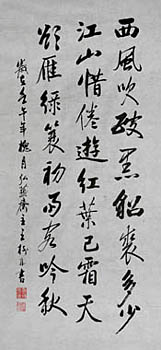 西風吹破黑貂裘多少
江山惜倦遊紅葉已霜天
欲雁綠蓑初雨客吟秋
歲在壬午年槐月弘藝齋主王